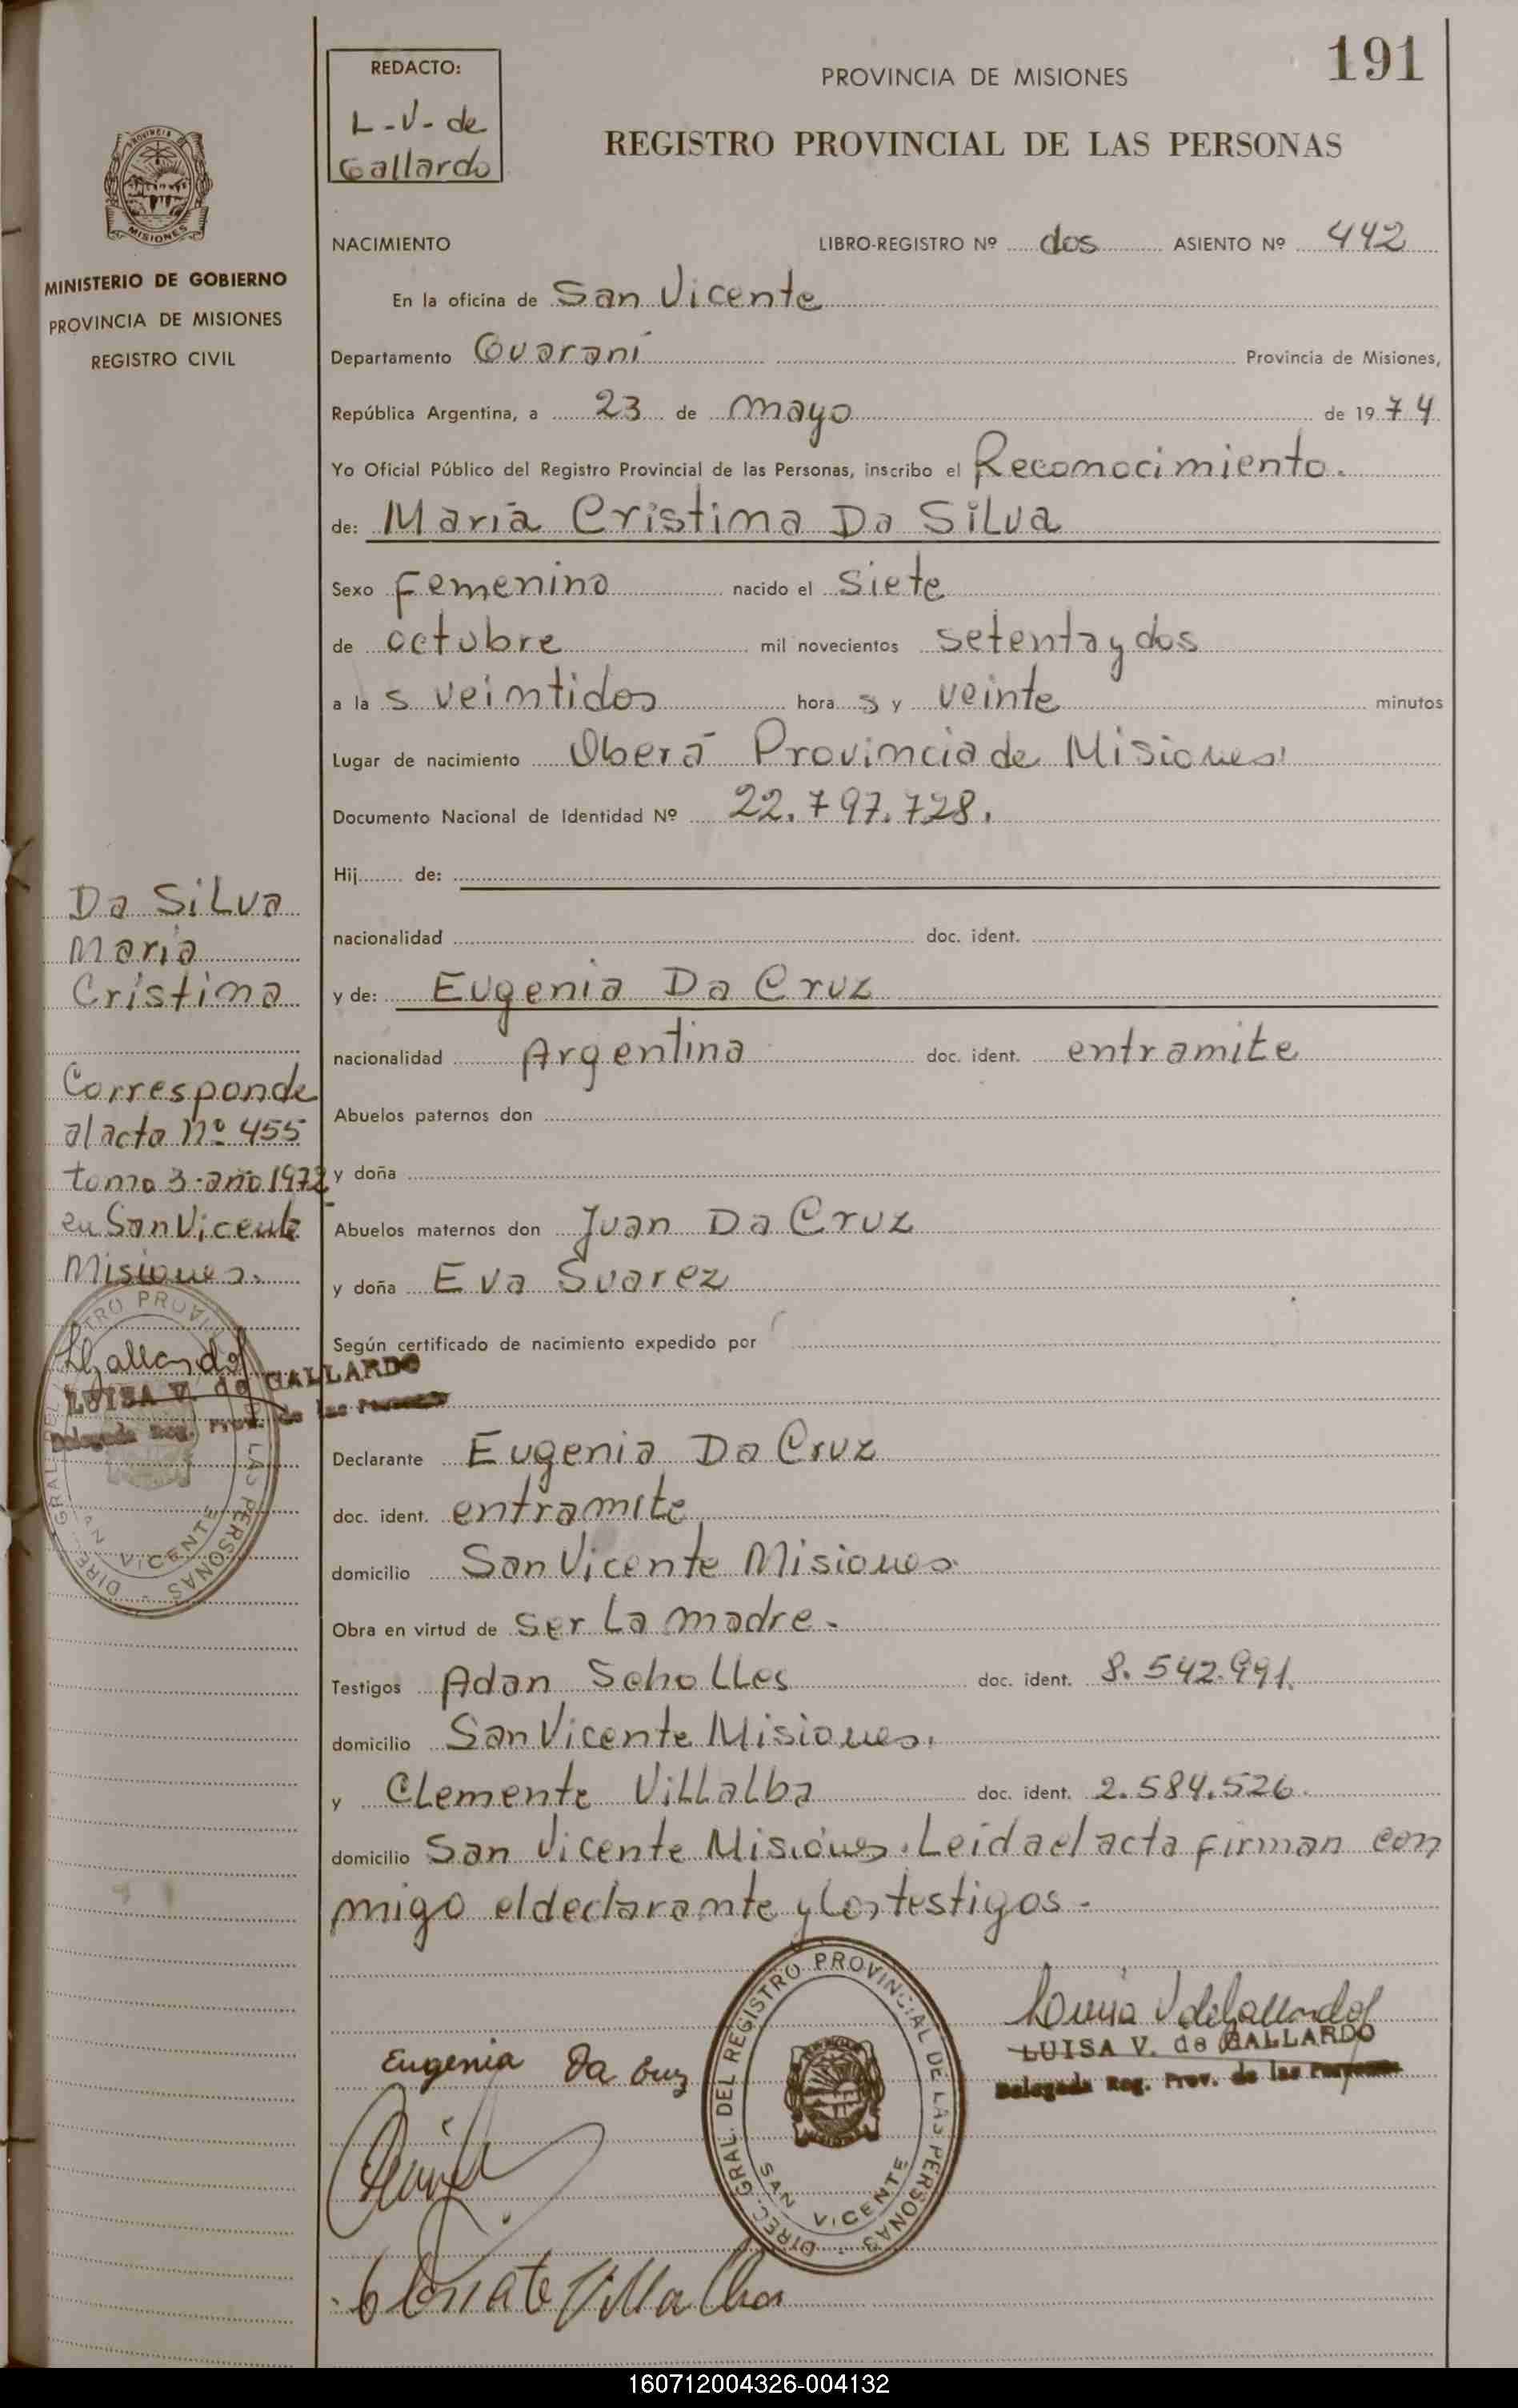 191
REDACTO:
L-V- de
Gallardo
PROVINCIA DE MISIONES
REGISTRO PROVINCIAL DE LAS PERSONAS
PROVINCIA
MISIONES
MINISTERIO DE GOBIERNO
PROVINCIA DE MISIONES
REGISTRO CIVIL
NACIMIENTO LIBRO-REGISTRO Nº dos ASIENTO Nº 442
En la oficina de San Vicente
Departamento Guaraní Provincia de Misiones,
República Argentina, a 23 de mayo de 1974
Yo Oficial Público del Registro Provincial de las Personas, inscribo el Reconocimiento.
de: Maria Cristina Da Silva
Sexo Femenino nacido el Siete
de octubre mil novecientos setenta y dos
a las veintidos horas y veinte minutos
Lugar de nacimiento Oberá Provincia de Misiones
Documento Nacional de Identidad Nº 22.797.728.
Hij de:
nacionalidad doc. ident.
y de: Eugenia Da Cruz
nacionalidad Argentina doc. ident. entramite
Abuelos paternos don
y doña
Abuelos maternos don Juan Da Cruz
y doña Eva Suarez
Según certificado de nacimiento expedido por
Declarante Eugenia Da Cruz
doc. ident. entramite
domicilio San Vicente Misiones
Obra en virtud de ser La madre.
Testigos Adan Scholles doc. ident. 8.542.991.
domicilio San Vicente Misiones.
y Clemente Villalba doc. ident. 2.584.526.
domicilio San Vicente Misiones. Leida el acta firman con
migo el declarante y los testigos.
Da Silva
Maria
Cristina
Corresponde
al acta nº 455
tomo 3-año 1972
en San Vicente
Misiones.
LGallardo
LUISA V. de GALLARDO
Delegada Reg. Prov. de las Personas
DIREC. GRAL. DEL REGISTRO PROVINCIAL DE LAS PERSONAS
SAN VICENTE
Luisa V de Gallardo
LUISA V. de GALLARDO
Delegada Reg. Prov. de las Personas
Eugenia Da Cruz
DIREC. GRAL. DEL REGISTRO PROVINCIAL DE LAS PERSONAS
SAN VICENTE
Villalba
160712004326-004132